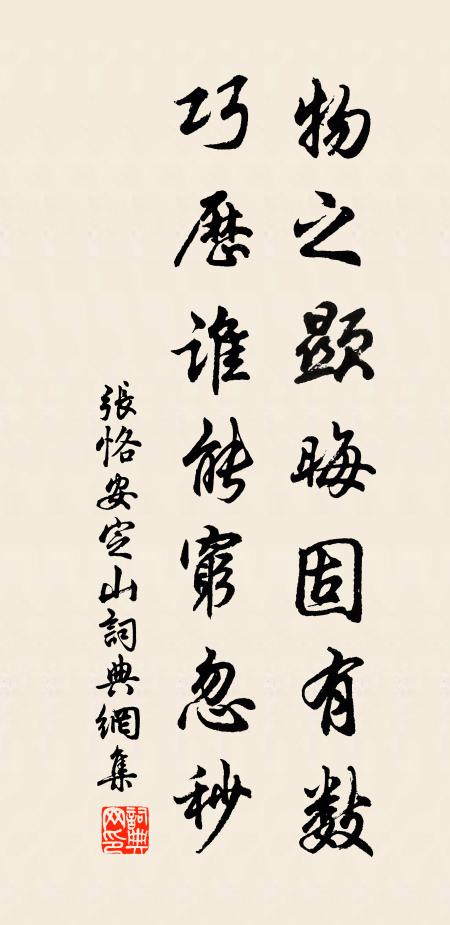 物之顯晦固有数
巧歷誰能窮忽秒
張恪安定山詞典網集
詞典网印